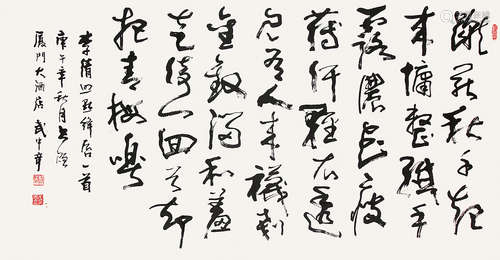 蹴罷秋千起
来慵整纖手
露濃花瘦
薄汗輕衣透
見有人来襪剗
金釵溜和羞
走倚門回首却
把青梅嗅
李清照點絳唇一首
庚午年秋月書
厦門大酒店 武中奇